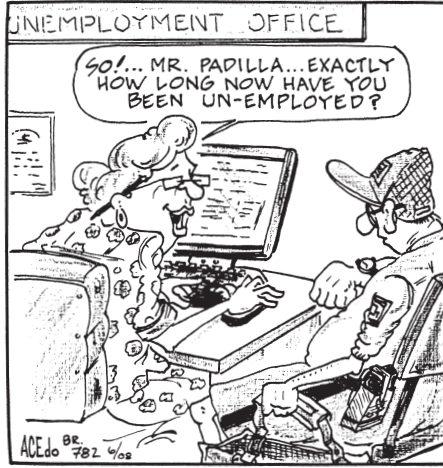 UNEMPLOYMENT OFFICE
SO!... MR. PADILLA...EXACTLY
HOW LONG NOW HAVE YOU
BEEN UN-EMPLOYED?
ACEdo BR.
782 6/08